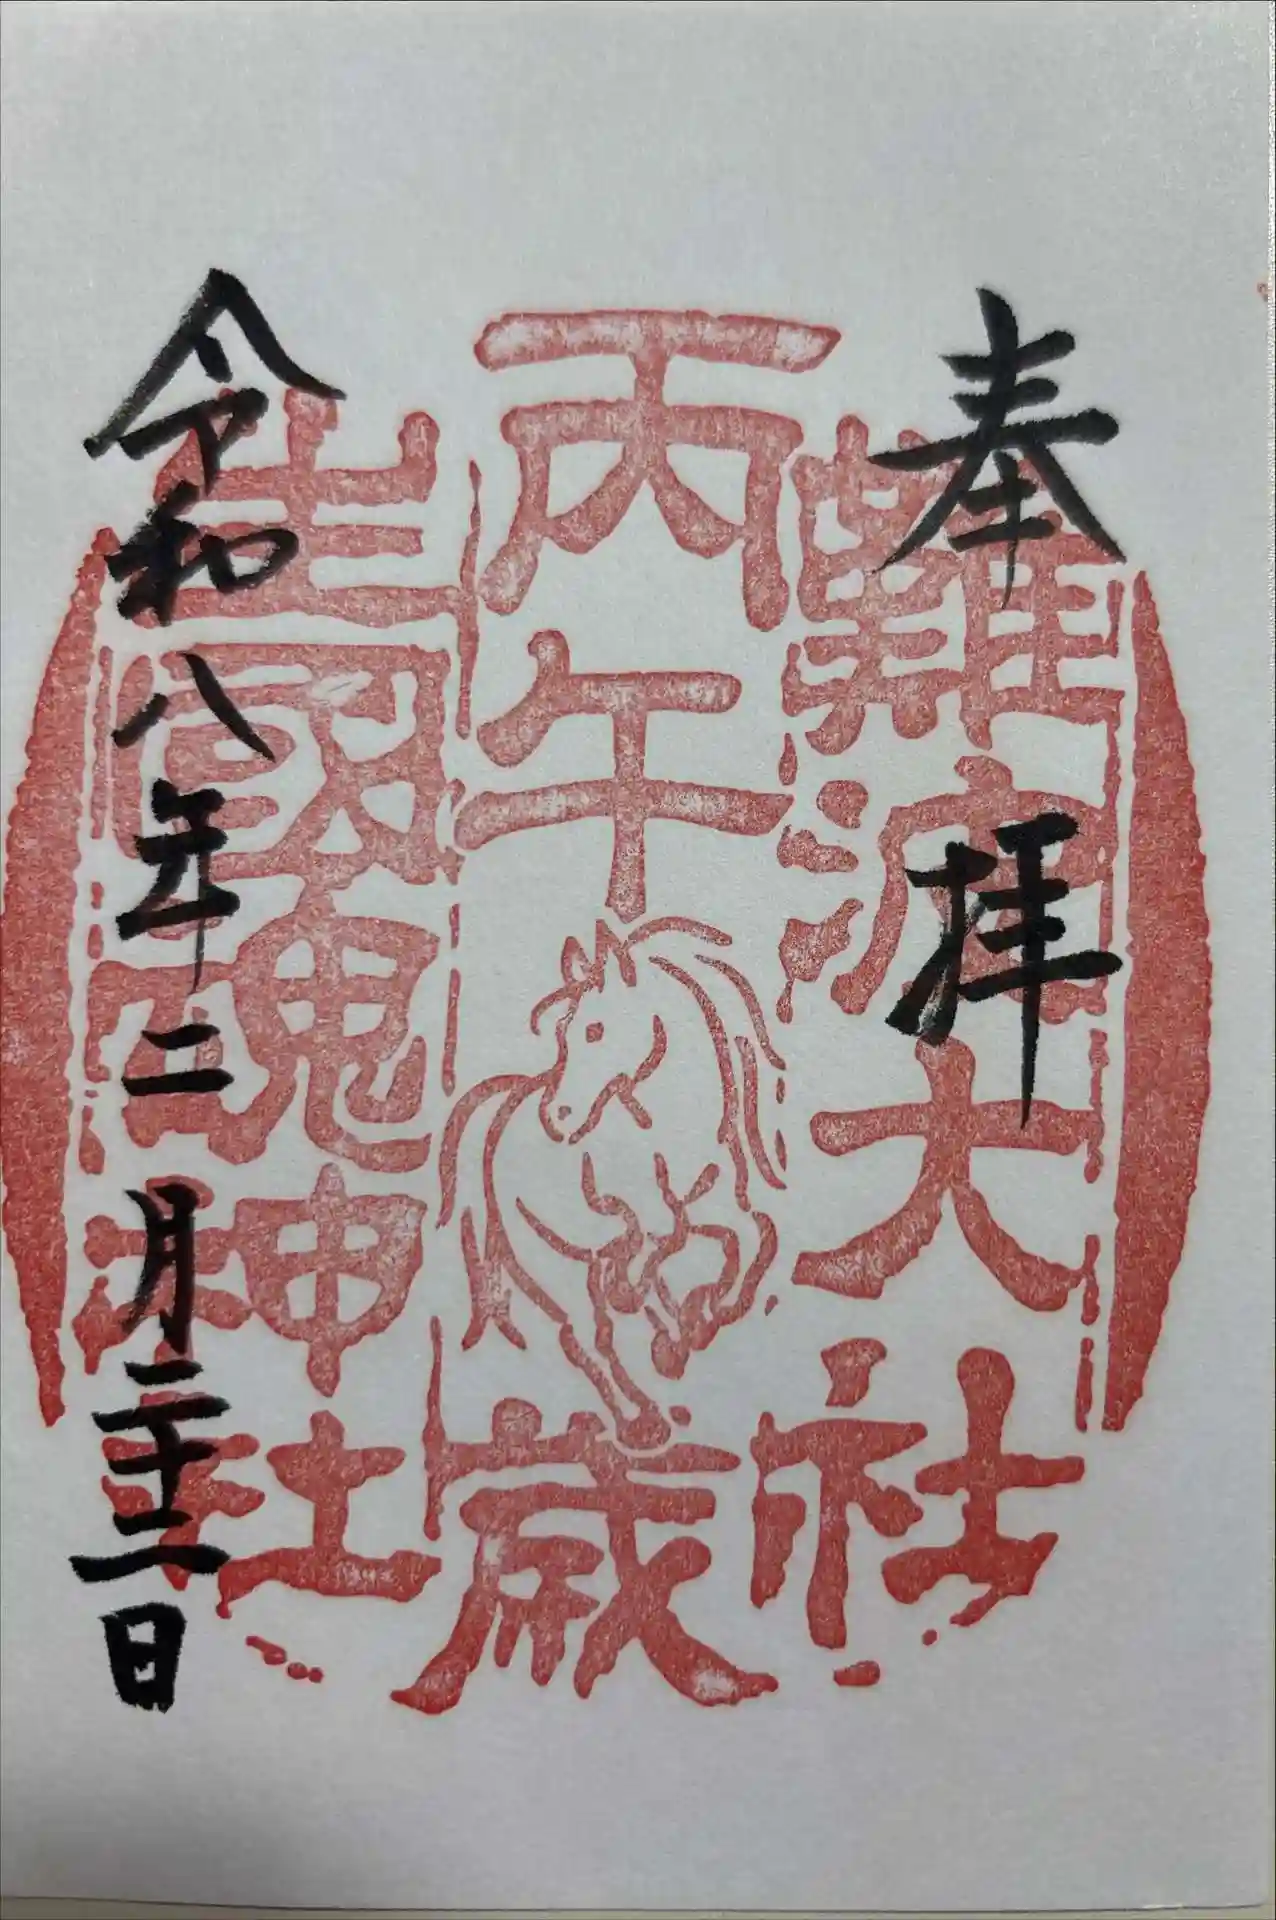 奉拝
難波大社
丙午歳
生國魂神社
令和八年二月二十二日